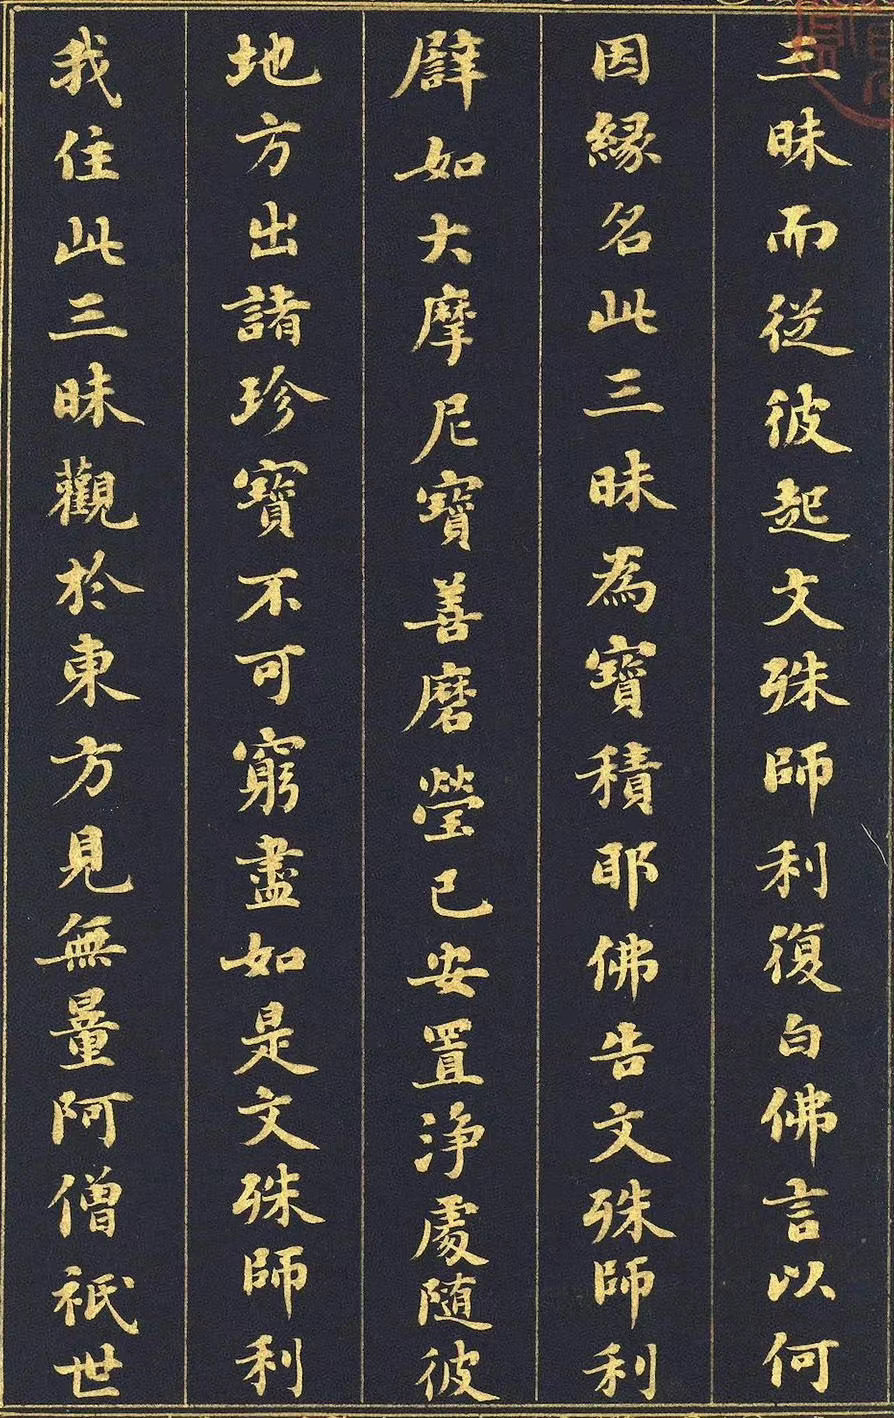 三昧而從彼起文殊師利復白佛言以何
因緣名此三昧為寶積耶佛告文殊師利
譬如大摩尼寶善磨瑩已安置淨處随彼
地方出諸珍寶不可窮盡如是文殊師利
我住此三昧觀於東方見無量阿僧祇世